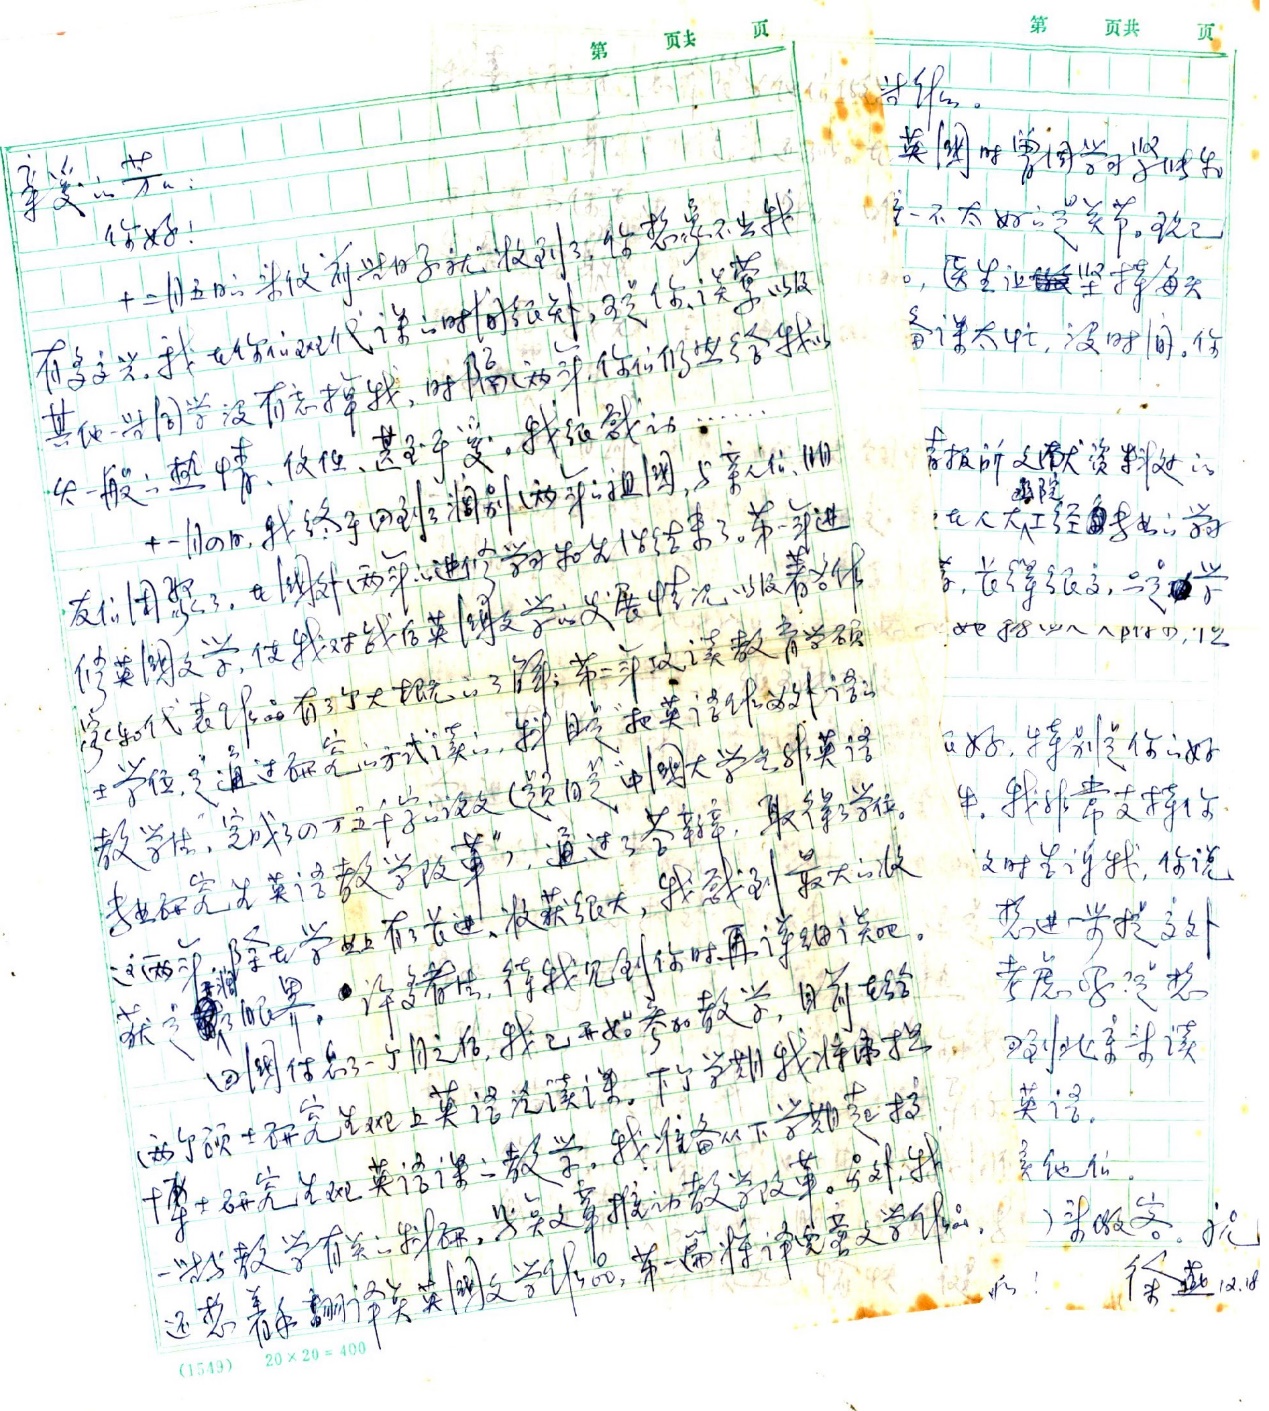 第 页共 页
亲爱的芳:
你好!
十二月五日的来信前些日子就收到了,你想象不出我
有多高兴。我在你们班代课的时间很短,可是你、谈蓦以及
其他一些同学没有忘掉我,时隔两年,你们仍然给我以
一般的热情、信任、甚至乎爱。我很感动……
十一月四日,我终于回到了阔别两年的祖国,与亲人们、朋
友们团聚了。在国外两年的进修学习和生活结束了。第一年进
修英国文学,使我对战后英国文学的发展情况以及著名作
家和代表作品有了个大概的了解;第二年攻读教育学硕
士学位,是通过研究的方式读的,科目是"把英语作为外语的
教学法",完成了四万五千字的论文(题目是"中国大学非英语
专业研究生英语教学改革"),通过了答辩,取得了学位。
这两年,除在学业上有了长进、收获很大,我感到最大的收
获是开阔了眼界。许多看法,待我见到你时再详细谈吧。
回国休息了一个月之后,我已开始参加教学,目前在给
两个硕士研究生班上英语泛读课。下个学期我将承担
博士研究生班英语课的教学。我准备从下学期起搞
一些与教学有关的科研,写些文章推动教学改革。另外,我
还想着手翻译英国文学作品,第一篇将译完 文学作品。
(1549) 20×20=400
第 页共 页
些作品。
英国时曾因学习紧张和
不太好的是关节。现已
。,医生让坚持每天
备课太忙,没时间。你
情报所文献资料处的
在人大工经 专业的学习
,长得很高,只是学
她
好,特别是你的好
生。我非常支持你
时告诉我,你说
想进一步提高外
考虑 是想
回到北京来读
英语。
其他们。
)来做客。祝
! 徐燕 12.18